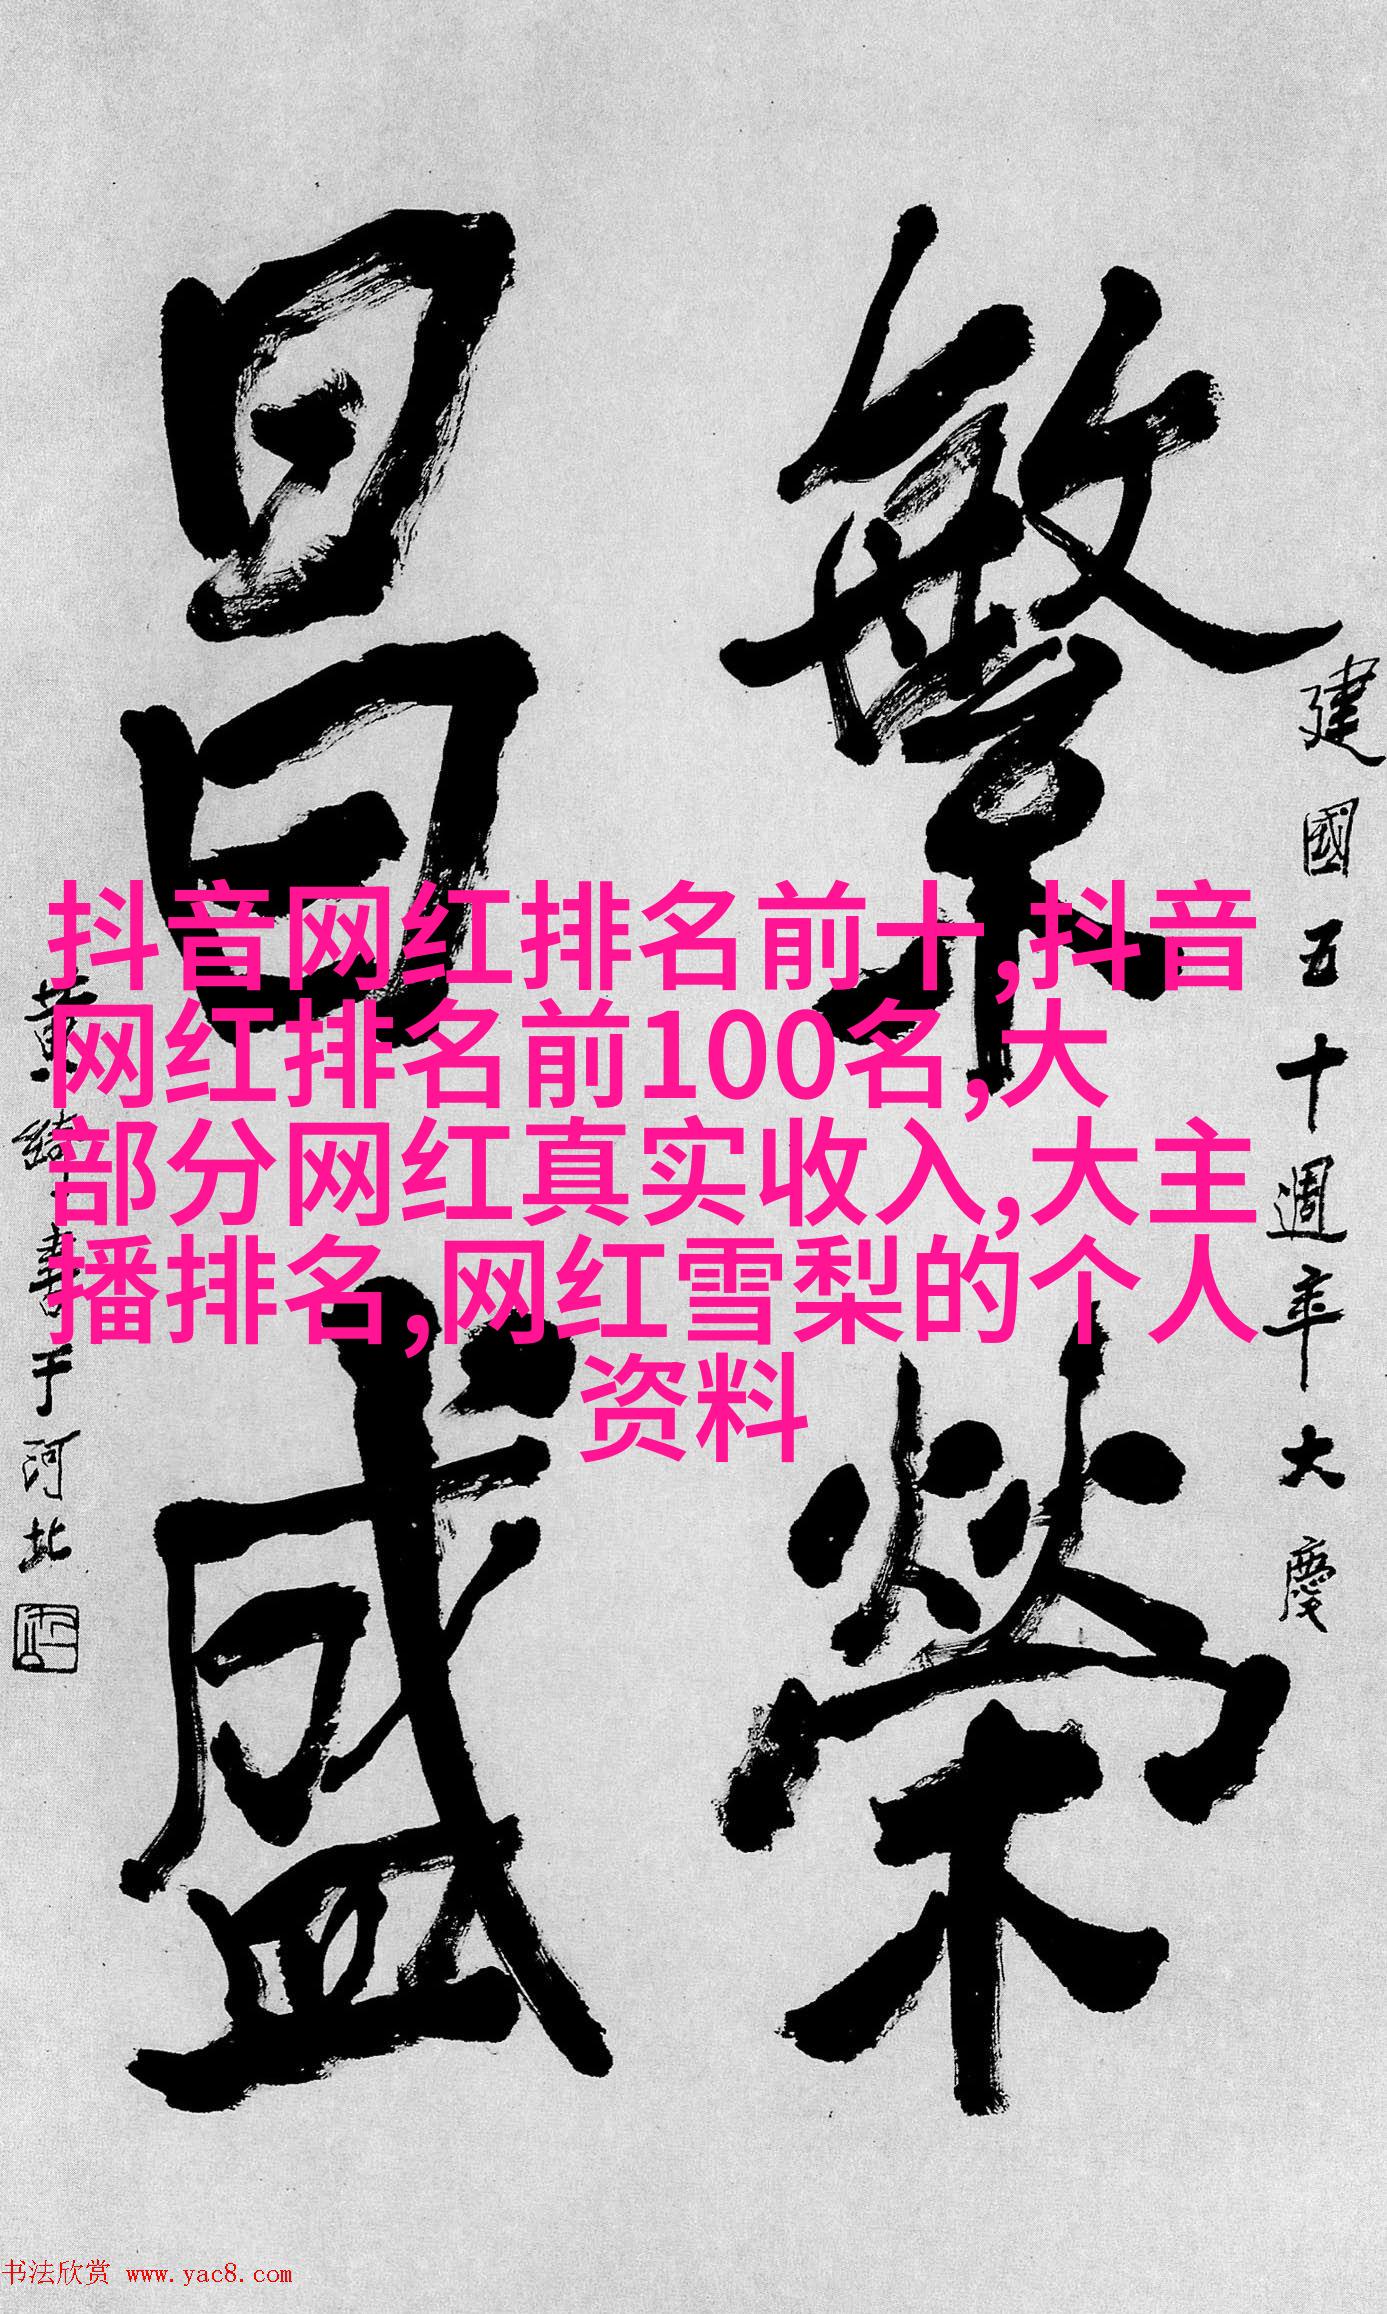 繁榮
昌盛
建國五十週年大慶
黄綺書于河北
抖音网红排名前十,抖音
网红排名前100名,大
部分网红真实收入,大主
播排名,网红雪梨的个人
资料
书法欣赏 www.yac8.com